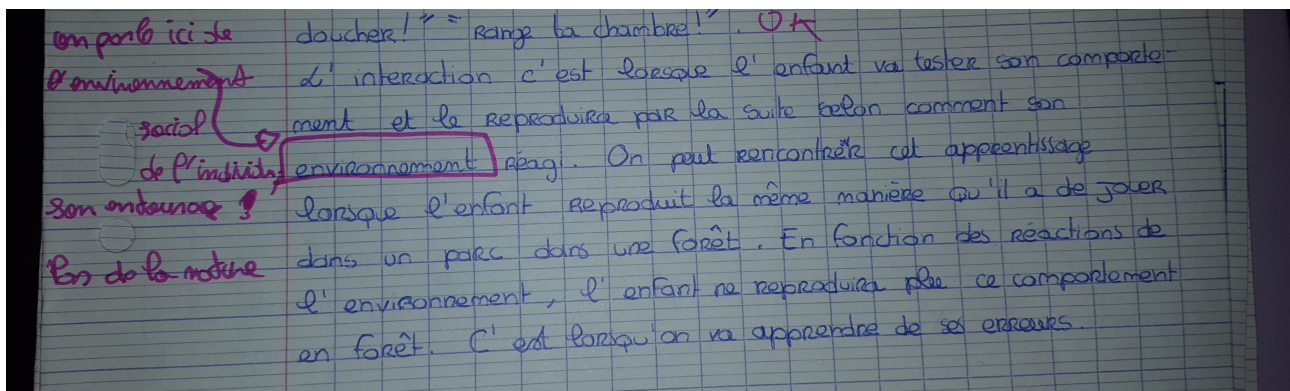 on parle ici de
l'environnement
social
de l'individu,
son entourage !
Pas de la nature
doucher!" " Range ta chambre!". OK
L'interaction c'est lorsque l'enfant va tester son comporte-
ment et le reproduira par la suite selon comment son
environnement réagi. On peut rencontrer cet apprentissage
lorsque l'enfant reproduit la même manière qu'il a de jouer
dans un parc dans une forêt. En fonction des réactions de
l'environnement, l'enfant ne reproduira ce comportement
en forêt. C'est lorsqu'on va apprendre de ses erreurs.